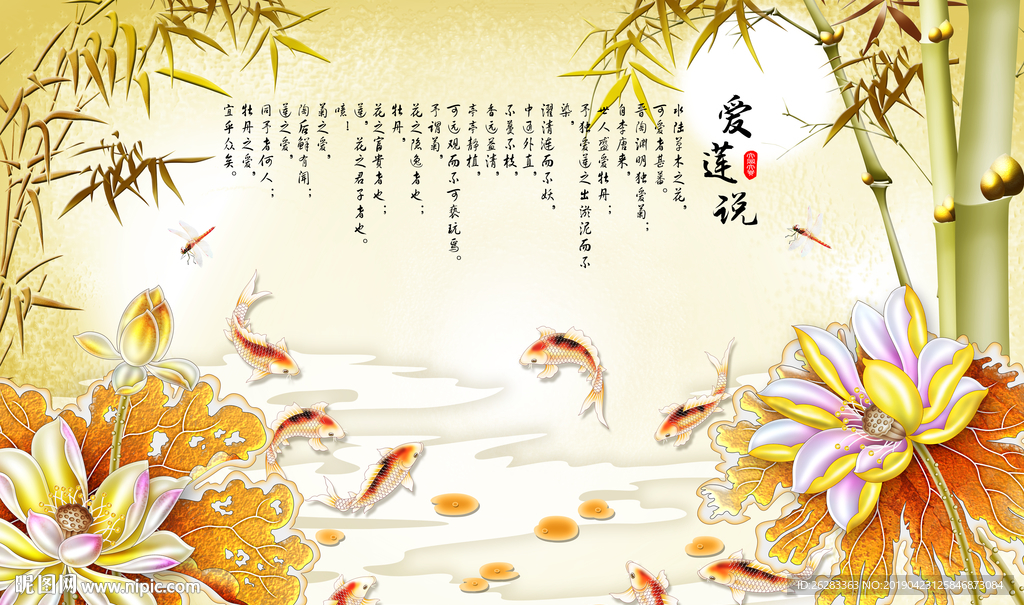 爱莲说
水陆草木之花，
可爱者甚蕃。
晋陶渊明独爱菊；
自李唐来，
世人盛爱牡丹；
予独爱莲之出淤泥而不
染，
濯清涟而不妖，
中通外直，
不蔓不枝，
香远益清，
亭亭静植，
可远观而不可亵玩焉。
予谓菊，
花之隐逸者也；
牡丹，
花之富贵者也；
莲，花之君子者也。
噫！
菊之爱，
陶后鲜有闻；
莲之爱，
同予者何人；
牡丹之爱，
宜乎众矣。
昵图网 www.nipic.com
ID:26283363 NO:20190423125846873084